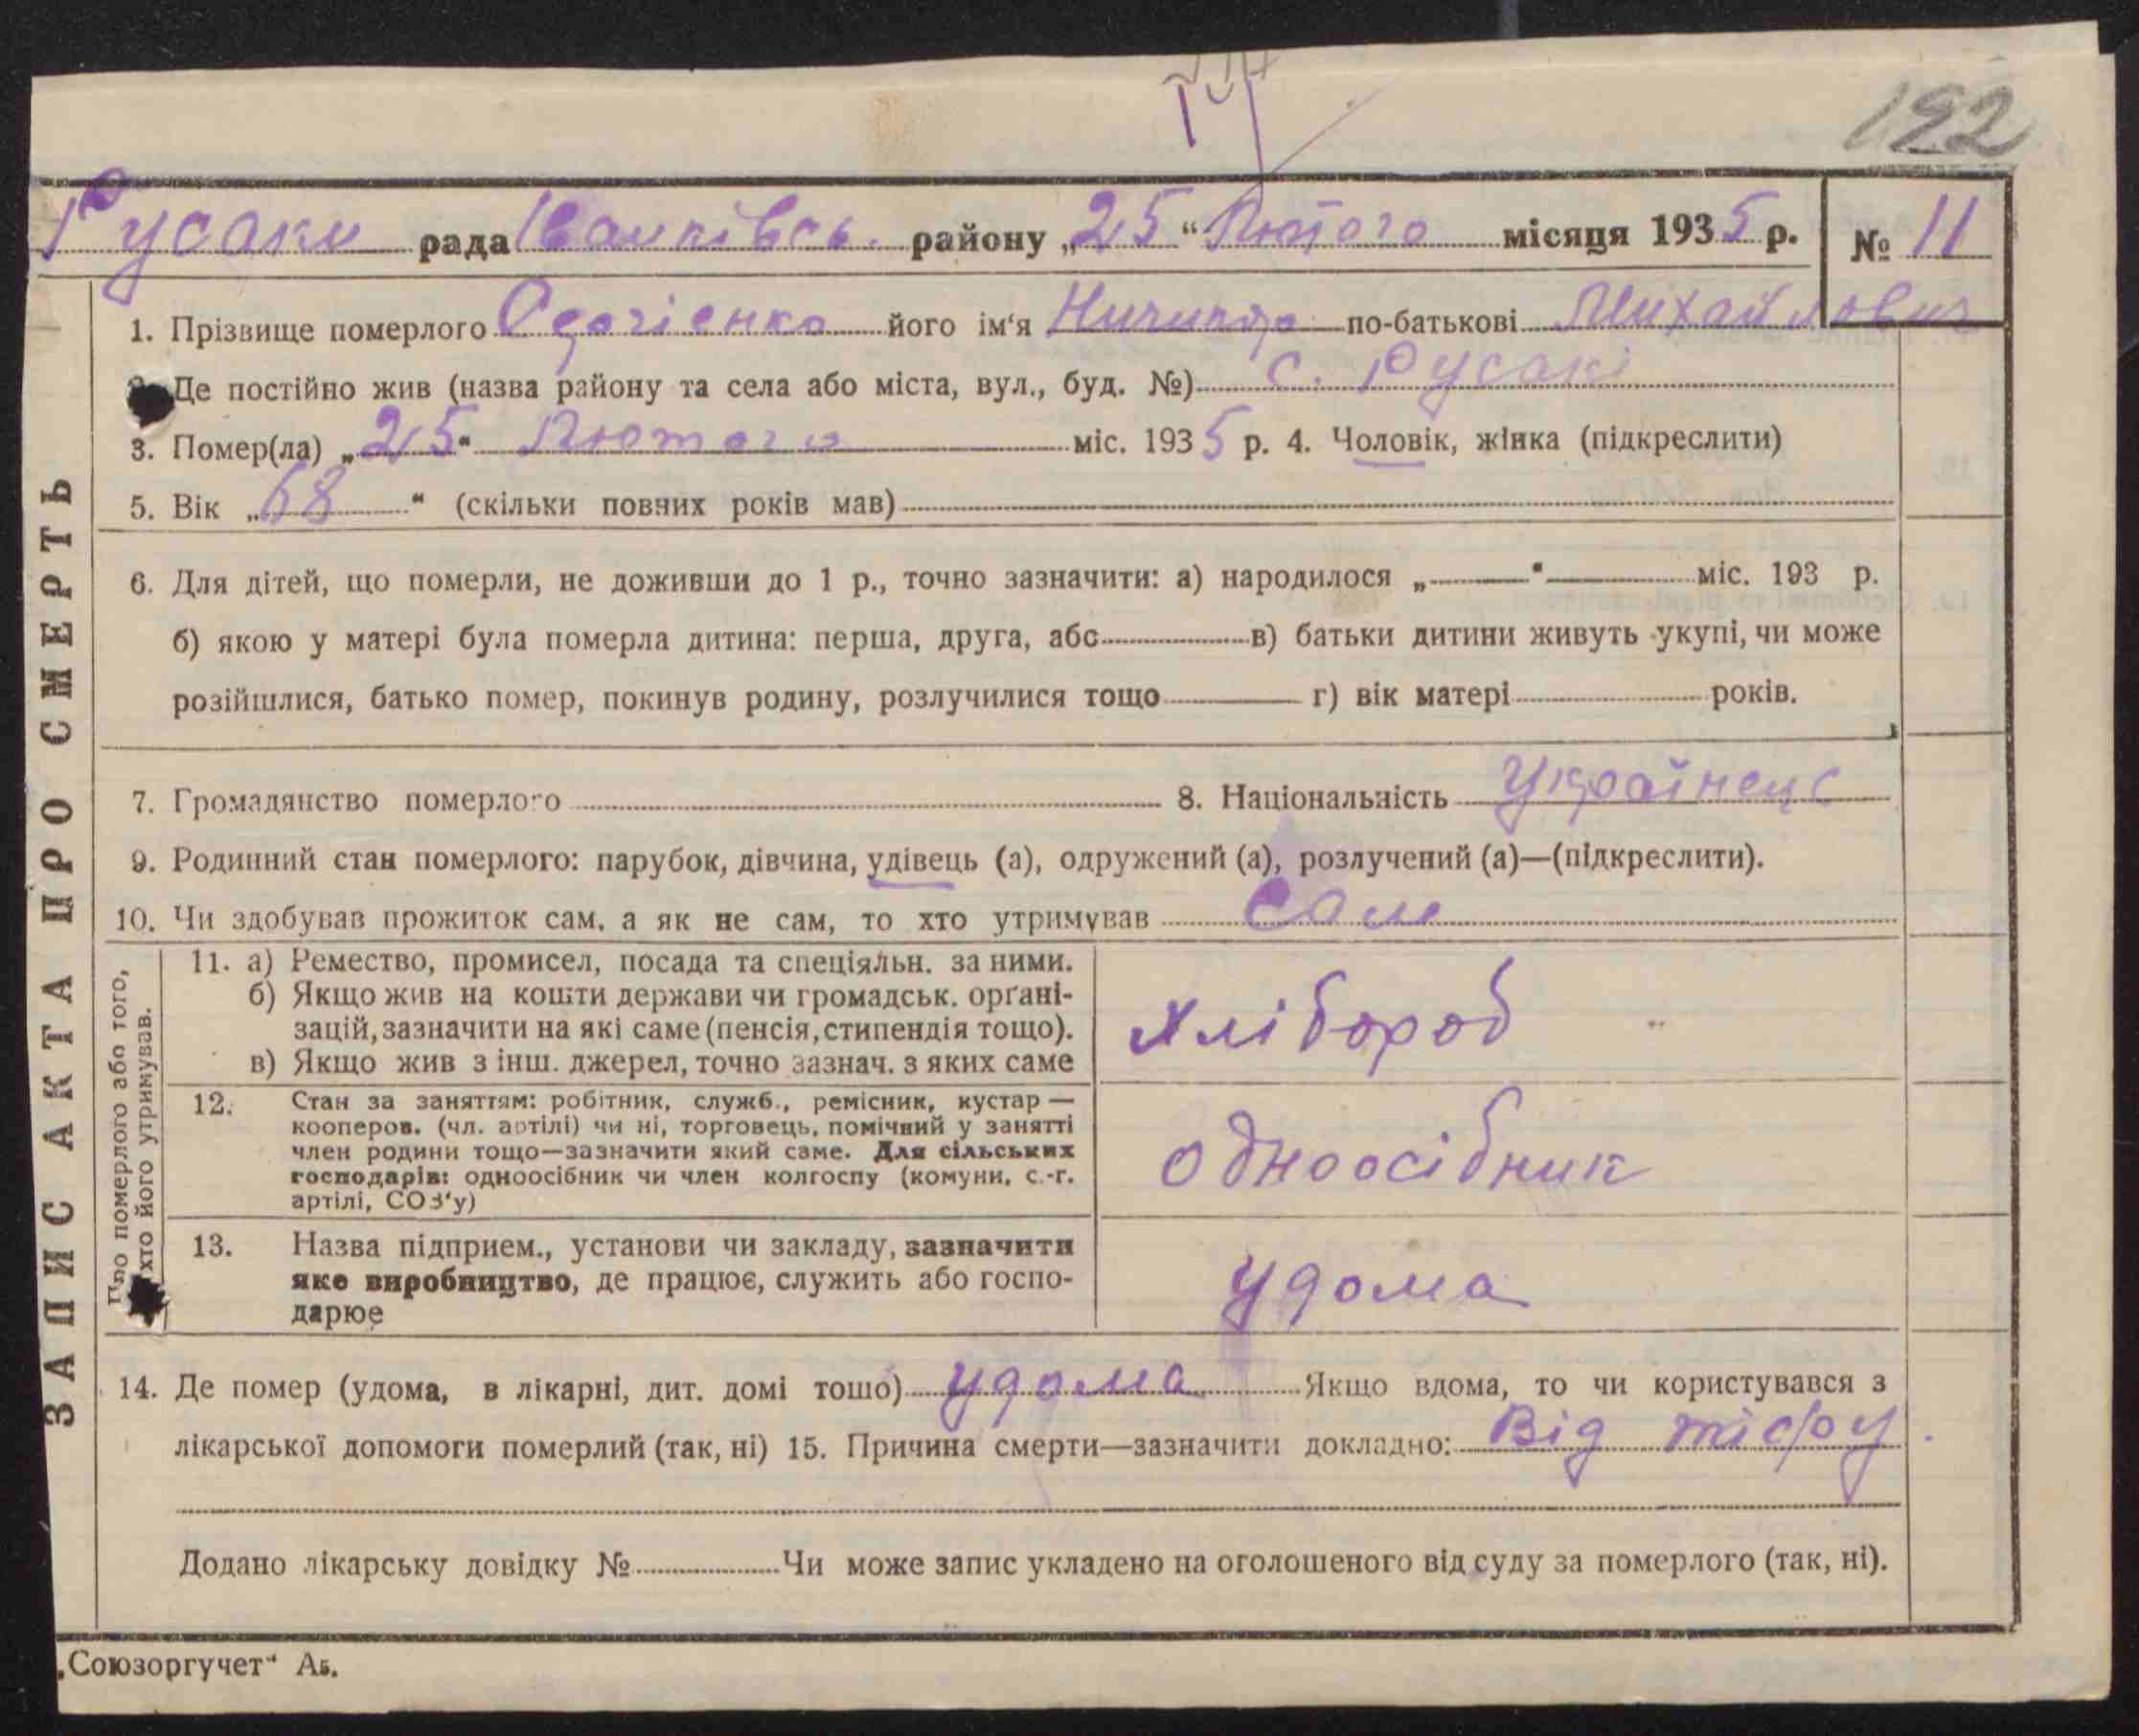 192
Русаки рада Іванківськ. району „25“ Лютого місяця 1935 р. № 11
1. Прізвище померлого його ім‘я Ничипор по-батькові Михайлович
2. Де постійно жив (назва району та села або міста, вул., буд. №) с. Русакі
3. Помер(ла) „25“ Лютого міс. 1935 р. 4. Чоловік, жінка (підкреслити)
5. Вік „68“ (скільки повних років мав)
6. Для дітей, що померли, не доживши до 1 р., точно зазначити: а) народилося „ “ міс. 193 р.
б) якою у матері була померла дитина: перша, друга, або в) батьки дитини живуть укупі, чи може
розійшлися, батько помер, покинув родину, розлучилися тощо г) вік матері років.
7. Громадянство померлого 8. Національність Українець
9. Родинний стан померлого: парубок, дівчина, удівець (а), одружений (а), розлучений (а)—(підкреслити).
10. Чи здобував прожиток сам, а як не сам, то хто утримував Сам
11. а) Ремество, промисел, посада та спеціяльн. за ними.
б) Якщо жив на кошти держави чи громадськ. орґані-
зацій, зазначити на які саме (пенсія, стипендія тощо).
в) Якщо жив з інш. джерел, точно зазнач. з яких саме
хлібороб
12. Стан за заняттям: робітник, служб., ремісник, кустар —
кооперов. (чл. артілі) чи ні, торговець, помічний у занятті
член родини тощо—зазначити який саме. Для сільських
господарів: одноосібник чи член колгоспу (комуни, с.-г.
артілі, СОЗ‘у)
одноосібник
13. Назва підприєм., установи чи закладу, зазначити
яке виробництво, де працює, служить або госпо-
дарює
удома
14. Де помер (удома, в лікарні, дит. домі тощо) удома Якщо вдома, то чи користувався з
лікарської допомоги померлий (так, ні) 15. Причина смерти—зазначити докладно: Від тіфу.
Додано лікарську довідку № Чи може запис укладено на оголошеного від суду за померлого (так, ні).
ЗАПИС АКТА ПРО СМЕРТЬ
Про померлого або того,
хто його утримував.
„Союзоргучет“ А5.